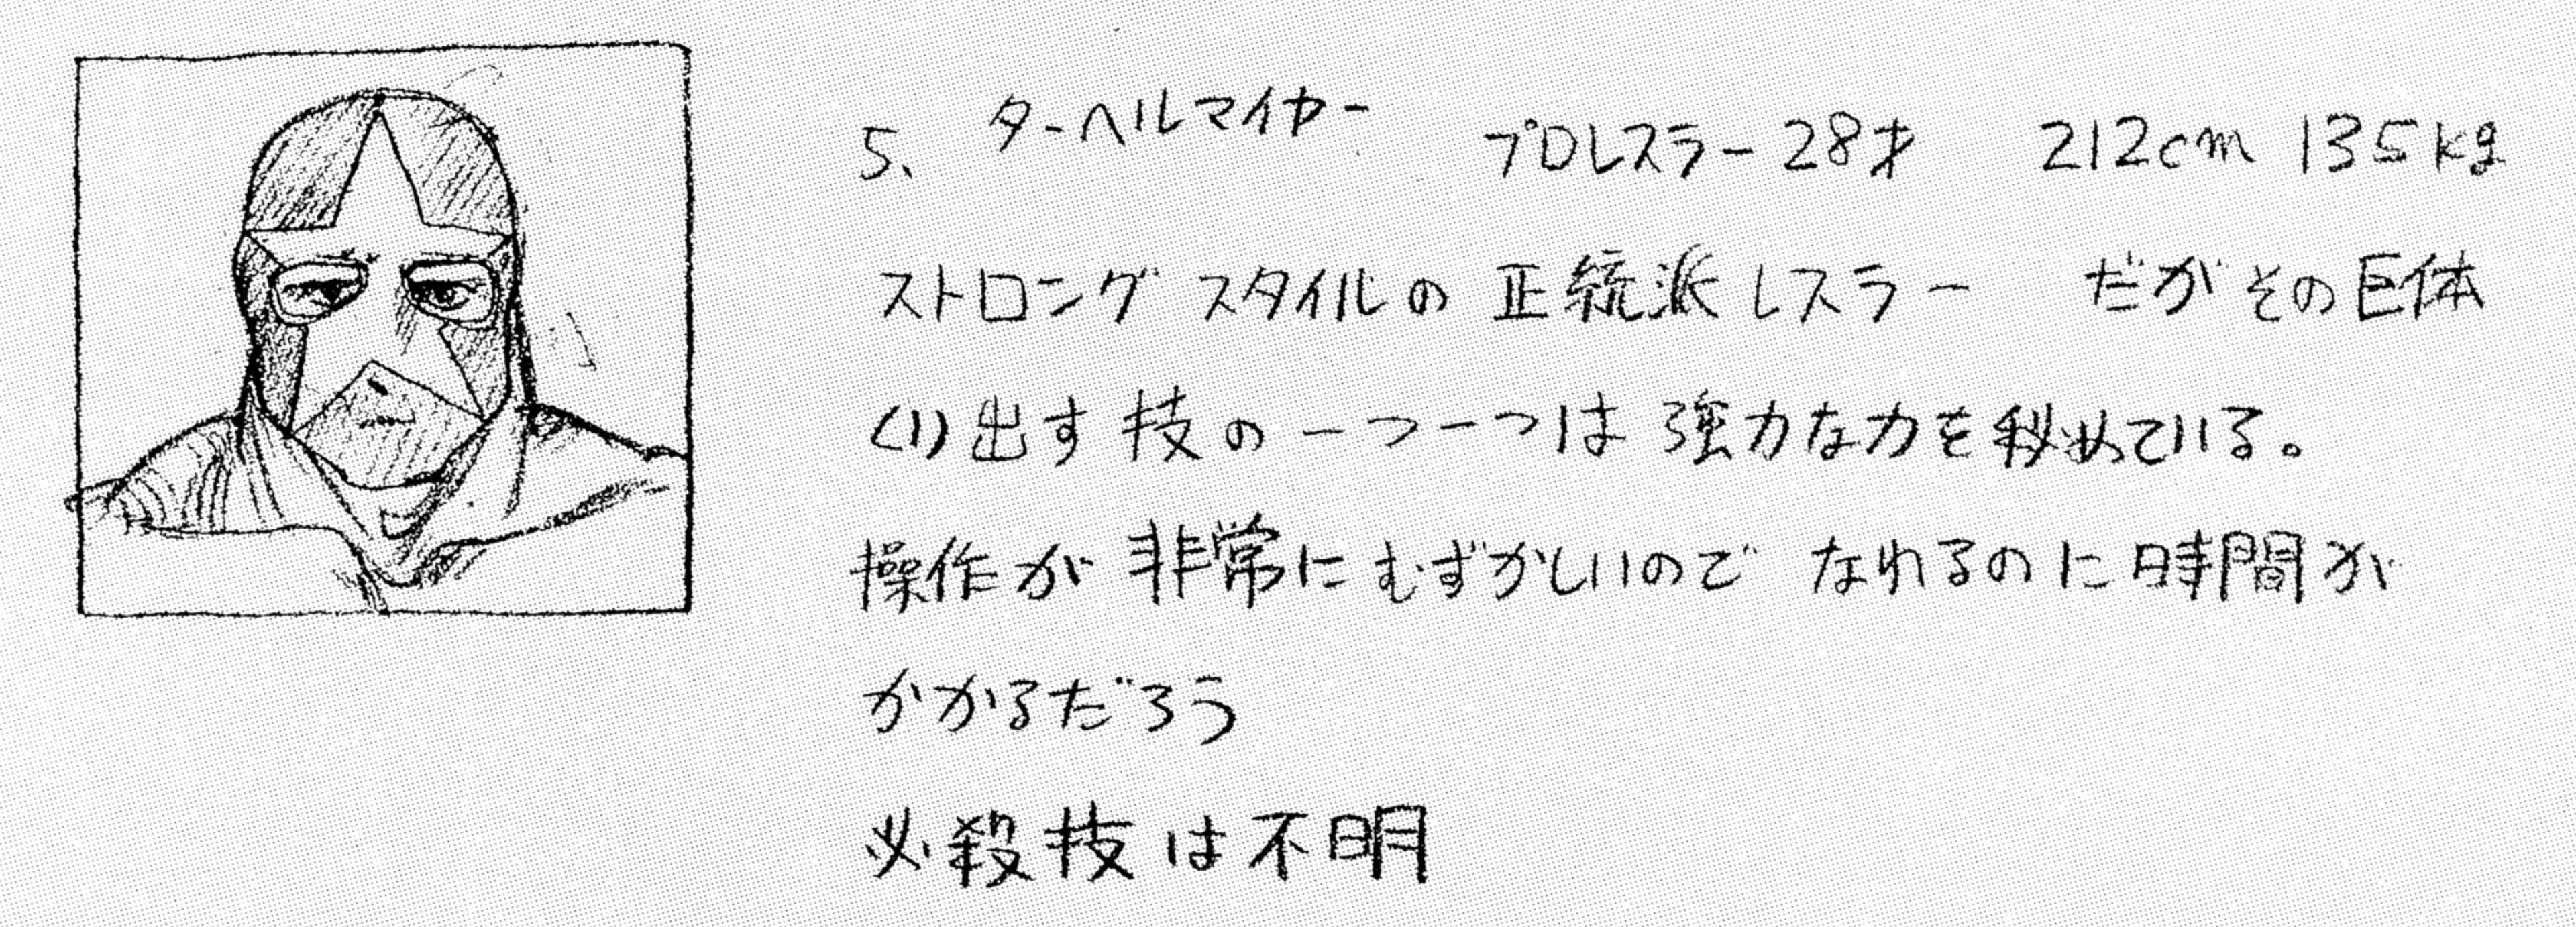 5、ターヘルマイヤー プロレスラー 28才 212cm 135kg
ストロングスタイルの正統派レスラー だがその巨体
くり出す技の一つ一つは強力な力を秘めている。
操作が非常にむずかしいので なれるのに時間が
かかるだろう
必殺技は不明